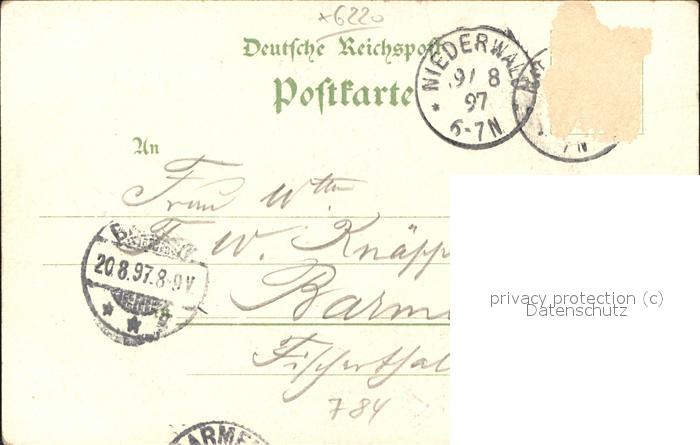 *6220
Deutsche Reichspost
Postkarte
NIEDERWALD
19/ 8
97
6-7N
7N
An
Frau Wttn
F. W. Knäpp
Barme
Fischerthal
784
20.8.97.8-9V.
* * g
ARME
privacy protection (c)
Datenschutz